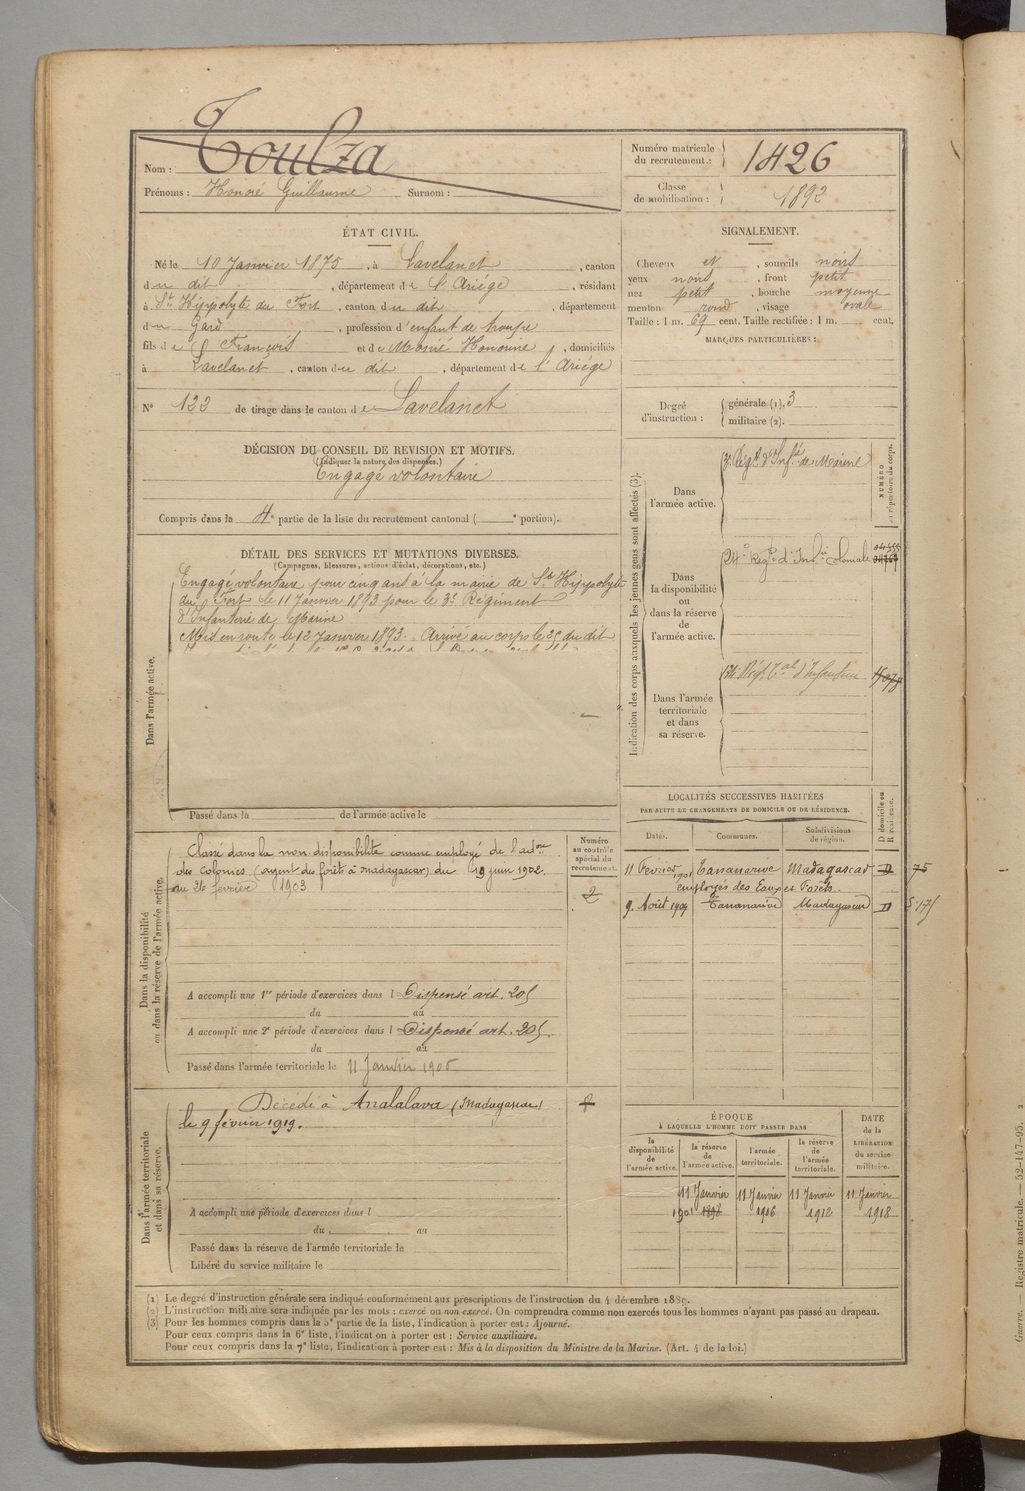 Nom : Toulza
Prénoms : Honoré Guillaume Surnom :
Numéro matricule du recrutement : 1426
Classe de mobilisation : 1892
ÉTAT CIVIL.
Né le 10 Janvier 1875, à Lavelanet, canton
du dit, département de l'Ariége, résidant
à St Hippolyte du Fort, canton du dit, département
du Gard, profession d'enfant de troupe
fils de François et de Honorine, domiciliés
à Lavelanet, canton du dit, département de l'Ariége
N° 123 de tirage dans le canton de Lavelanet
SIGNALEMENT.
Cheveux et, sourcils noirs
yeux noirs, front petit
nez petit, bouche moyenne
menton rond, visage ovale
Taille : 1 m. 69 cent. Taille rectifiée : 1 m. cent.
MARQUES PARTICULIÈRES :
Degré d'instruction : générale (1). 3
militaire (2).
DÉCISION DU CONSEIL DE REVISION ET MOTIFS.
(Indiquer la nature des dispenses.)
Engagé volontaire
Compris dans la 4e partie de la liste du recrutement cantonal ( e portion).
DÉTAIL DES SERVICES ET MUTATIONS DIVERSES.
(Campagnes, blessures, actions d'éclat, décorations, etc.)
Dans l'armée active.
Engagé volontaire pour cinq ans à la mairie de St Hippolyte
du Fort le 11 Janvier 1893 pour le 3e Régiment
d'Infanterie de Marine
Mis en route le 12 Janvier 1893. Arrivé au corps le 25 du dit
Passé dans la de l'armée active le
Indication des corps auxquels les jeunes gens sont affectés (3).
NUMÉRO au répertoire du corps.
Dans l'armée active.
3e Régt d'Inft de Marine
Dans la disponibilité ou dans la réserve de l'armée active.
24e Régt d'Inf. Coloniale
Dans l'armée territoriale et dans sa réserve.
134 Régt Tal d'Infanterie
LOCALITÉS SUCCESSIVES HABITÉES
PAR SUITE DE CHANGEMENTS DE DOMICILE OU DE RÉSIDENCE.
Dates. Communes. Subdivisions de région. D domicile ou R résidence.
11 Février 1901 Tananarive Madagascar D 75
employés des Eaux et Forêts
9 Août 1909 Tananarive Madagascar D
Dans la disponibilité ou dans la réserve de l'armée active.
Numéro au contrôle spécial du recrutement.
Classé dans la non disponibilité comme employé de l'adon
des Colonies (agent des forêts à Madagascar) du 19 juin 1902
au 26 février 1903
2
A accompli une 1re période d'exercices dans l Dispensé art. 205
du au
A accompli une 2e période d'exercices dans l Dispensé art. 205
du au
Passé dans l'armée territoriale le 11 Janvier 1906
Dans l'armée territoriale et dans sa réserve.
Décédé à Analalava (Madagascar)
le 9 février 1919.
A accompli une période d'exercices dans l
du au
Passé dans la réserve de l'armée territoriale le
Libéré du service militaire le
ÉPOQUE
À LAQUELLE L'HOMME DOIT PASSER DANS
DATE de la LIBÉRATION du service militaire.
la disponibilité de l'armée active. la réserve de l'armée active. l'armée territoriale. la réserve de l'armée territoriale.
11 Janvier 11 Janvier 11 Janvier 11 Janvier
1901 1898 1906 1912 1918
(1) Le degré d'instruction générale sera indiqué conformément aux prescriptions de l'instruction du 4 décembre 1889.
(2) L'instruction militaire sera indiquée par les mots : exercé ou non exercé. On comprendra comme non exercés tous les hommes n'ayant pas passé au drapeau.
(3) Pour les hommes compris dans la 5e partie de la liste, l'indication à porter est : Ajourné.
Pour ceux compris dans la 6e liste, l'indication à porter est : Service auxiliaire.
Pour ceux compris dans la 7e liste, l'indication à porter est : Mis à la disposition du Ministre de la Marine. (Art. 4 de la loi.)
Guerre. — Registre matricule. — 52-147-95. 2